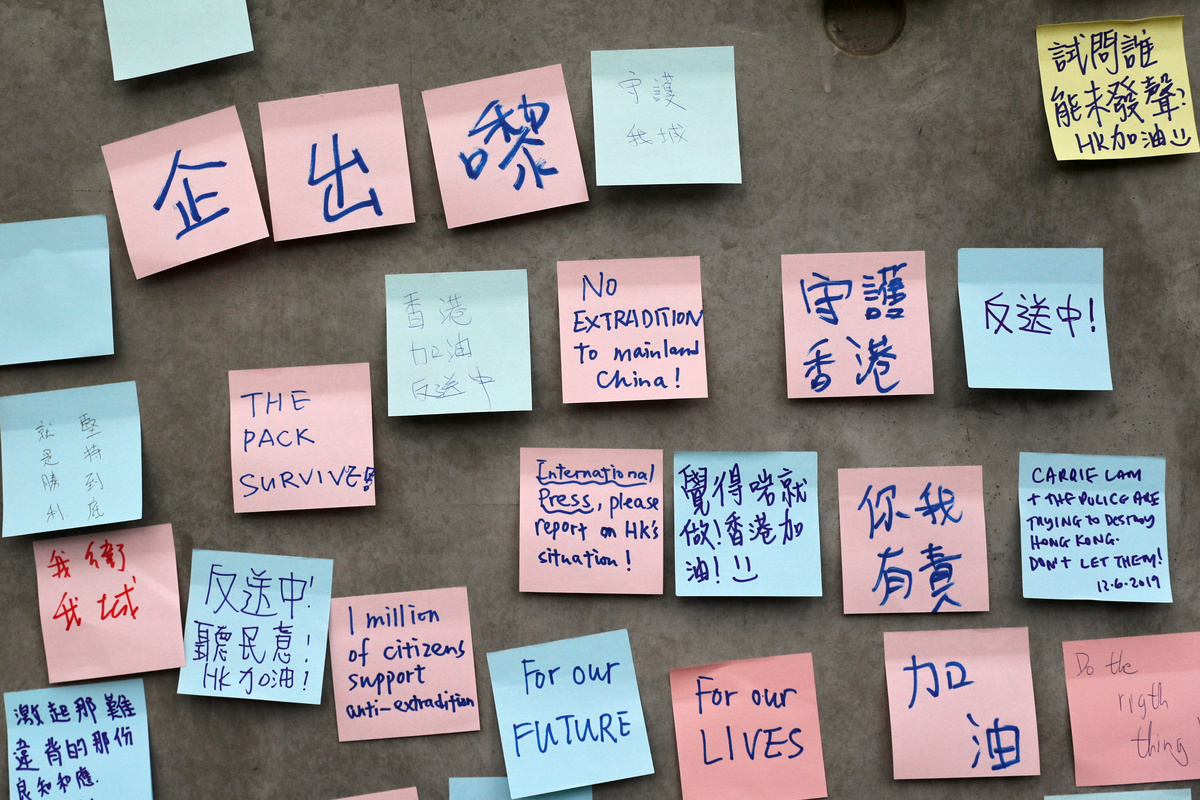 企
出
嚟
守護
我城
試問誰
能未發聲?
HK加油
香港
加油
反送中
No
EXTRADITION
to mainland
China!
守護
香港
反送中!
堅持到底
就是勝利
THE
PACK
SURVIVES!
International
Press, please
report on HK's
situation!
覺得啱就
做!香港加
油!
你我
有責
CARRIE LAM
+ THE POLICE ARE
TRYING TO DESTROY
HONG KONG.
DON'T LET THEM!
12.6.2019
我衛
我城
反送中!
聽民意!
HK加油!
1 million
of citizens
support
anti-extradition
For our
FUTURE
For our
LIVES
加
油
Do the
rigth
thing
激起那難
違背的那份
良知和應.